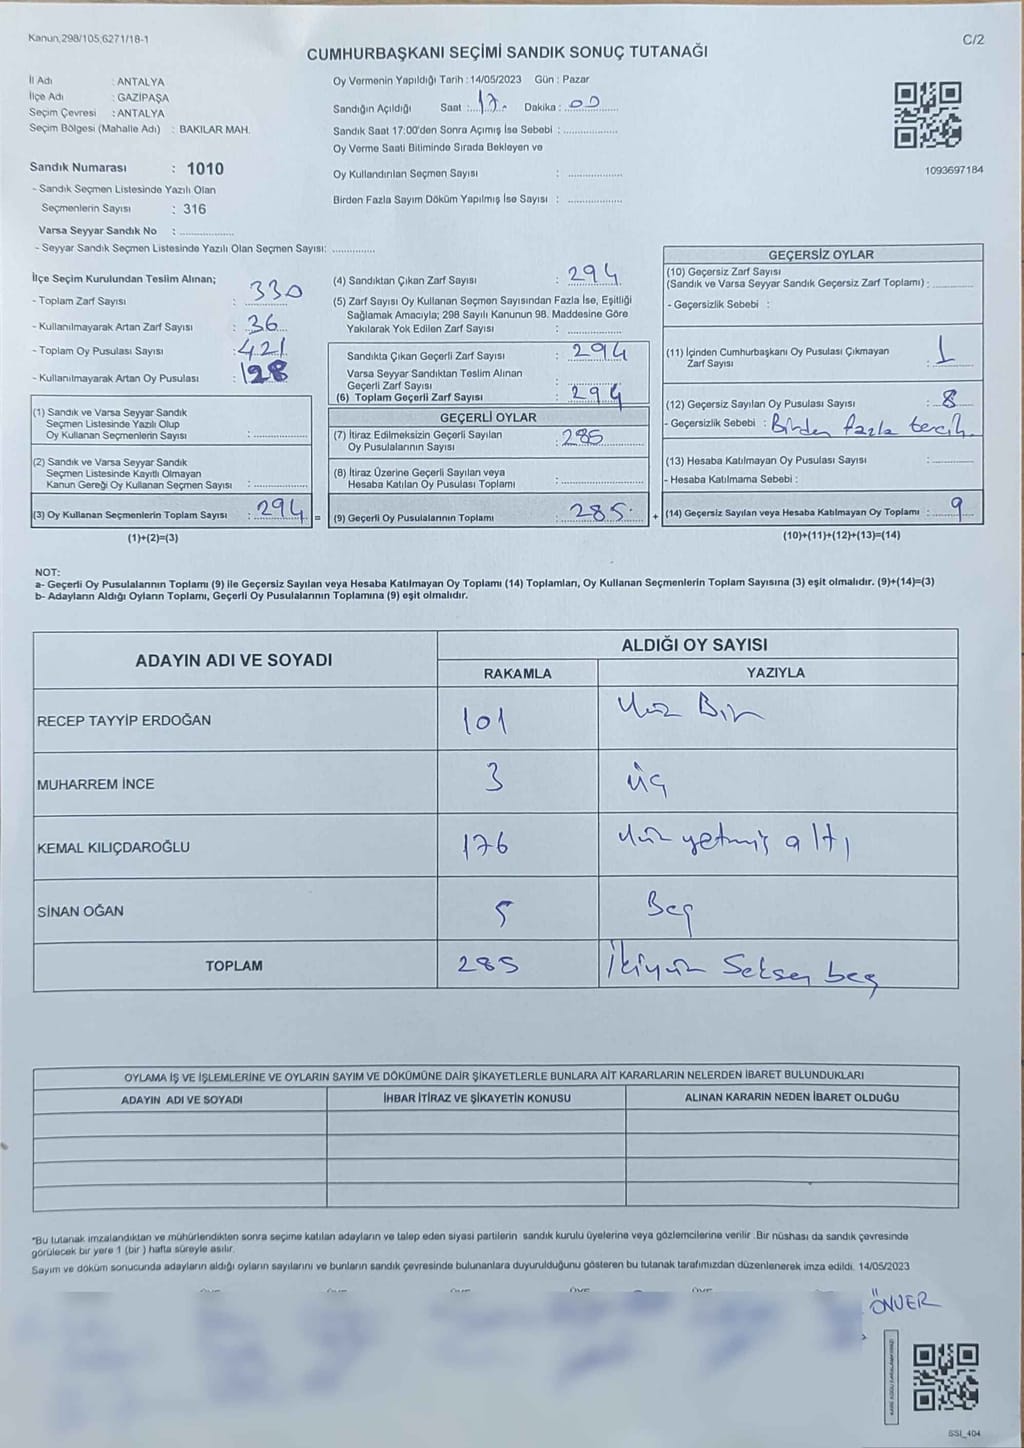 Kanun,298/105,6271/18-1
C/2
CUMHURBAŞKANI SEÇİMİ SANDIK SONUÇ TUTANAĞI
İl Adı : ANTALYA
İlçe Adı : GAZİPAŞA
Seçim Çevresi : ANTALYA
Seçim Bölgesi (Mahalle Adı) : BAKILAR MAH.
Sandık Numarası : 1010
- Sandık Seçmen Listesinde Yazılı Olan
Seçmenlerin Sayısı : 316
Varsa Seyyar Sandık No : ................
- Seyyar Sandık Seçmen Listesinde Yazılı Olan Seçmen Sayısı: .............
Oy Vermenin Yapıldığı Tarih : 14/05/2023 Gün : Pazar
Sandığın Açıldığı Saat : 17 Dakika : 00
Sandık Saat 17:00'den Sonra Açımış İse Sebebi : ................
Oy Verme Saati Bitiminde Sırada Bekleyen ve
Oy Kullandırılan Seçmen Sayısı : ................
Birden Fazla Sayım Döküm Yapılmış İse Sayısı : ................
1093697184
İlçe Seçim Kurulundan Teslim Alınan;
- Toplam Zarf Sayısı : 330
- Kullanılmayarak Artan Zarf Sayısı : 36
- Toplam Oy Pusulası Sayısı : 421
- Kullanılmayarak Artan Oy Pusulası : 128
(1) Sandık ve Varsa Seyyar Sandık
Seçmen Listesinde Yazılı Olup
Oy Kullanan Seçmenlerin Sayısı : ................
(2) Sandık ve Varsa Seyyar Sandık
Seçmen Listesinde Kayıtlı Olmayan
Kanun Gereği Oy Kullanan Seçmen Sayısı : ................
(3) Oy Kullanan Seçmenlerin Toplam Sayısı : 294 =
(1)+(2)=(3)
(4) Sandıktan Çıkan Zarf Sayısı : 294
(5) Zarf Sayısı Oy Kullanan Seçmen Sayısından Fazla İse, Eşitliği
Sağlamak Amacıyla; 298 Sayılı Kanunun 98. Maddesine Göre
Yakılarak Yok Edilen Zarf Sayısı : ................
Sandıkta Çıkan Geçerli Zarf Sayısı : 294
Varsa Seyyar Sandıktan Teslim Alınan
Geçerli Zarf Sayısı : ................
(6) Toplam Geçerli Zarf Sayısı : 294
GEÇERLİ OYLAR
(7) İtiraz Edilmeksizin Geçerli Sayılan
Oy Pusulalarının Sayısı : 285
(8) İtiraz Üzerine Geçerli Sayılan veya
Hesaba Katılan Oy Pusulası Toplamı : ................
(9) Geçerli Oy Pusulalarının Toplamı : 285 +
GEÇERSİZ OYLAR
(10) Geçersiz Zarf Sayısı
(Sandık ve Varsa Seyyar Sandık Geçersiz Zarf Toplamı) : ............
- Geçersizlik Sebebi :
(11) İçinden Cumhurbaşkanı Oy Pusulası Çıkmayan
Zarf Sayısı : 1
(12) Geçersiz Sayılan Oy Pusulası Sayısı : 8
- Geçersizlik Sebebi : Birden fazla tercih.
(13) Hesaba Katılmayan Oy Pusulası Sayısı : ............
- Hesaba Katılmama Sebebi :
(14) Geçersiz Sayılan veya Hesaba Katılmayan Oy Toplamı : 9
(10)+(11)+(12)+(13)=(14)
NOT:
a- Geçerli Oy Pusulalarının Toplamı (9) ile Geçersiz Sayılan veya Hesaba Katılmayan Oy Toplamı (14) Toplamları, Oy Kullanan Seçmenlerin Toplam Sayısına (3) eşit olmalıdır. (9)+(14)=(3)
b- Adayların Aldığı Oyların Toplamı, Geçerli Oy Pusulalarının Toplamına (9) eşit olmalıdır.
ADAYIN ADI VE SOYADI
ALDIĞI OY SAYISI
RAKAMLA YAZIYLA
RECEP TAYYİP ERDOĞAN 101 Yüz Bir
MUHARREM İNCE 3 üç
KEMAL KILIÇDAROĞLU 176 Yüz yetmiş altı
SİNAN OĞAN 5 Beş
TOPLAM 285 İkiyüz Seksen beş
OYLAMA İŞ VE İŞLEMLERİNE VE OYLARIN SAYIM VE DÖKÜMÜNE DAİR ŞİKAYETLERLE BUNLARA AİT KARARLARIN NELERDEN İBARET BULUNDUKLARI
ADAYIN ADI VE SOYADI İHBAR İTİRAZ VE ŞİKAYETİN KONUSU ALINAN KARARIN NEDEN İBARET OLDUĞU
*Bu tutanak imzalandıktan ve mühürlendikten sonra seçime katılan adayların ve talep eden siyasi partilerin sandık kurulu üyelerine veya gözlemcilerine verilir. Bir nüshası da sandık çevresinde
görülecek bir yere 1 (bir ) hafta süreyle asılır.
Sayım ve döküm sonucunda adayların aldığı oyların sayılarını ve bunların sandık çevresinde bulunanlara duyurulduğunu gösteren bu tutanak tarafımızdan düzenlenerek imza edildi. 14/05/2023
ÖNVER
SSI_404